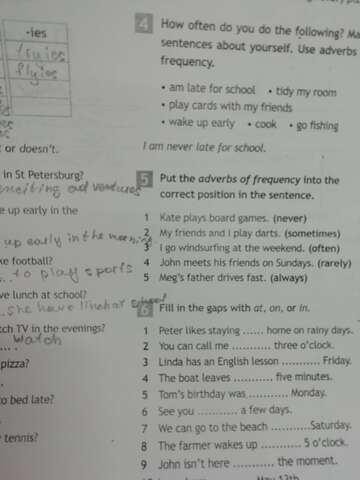 -ies
tryies
flyies
4 How often do you do the following? Ma
sentences about yourself. Use adverbs
frequency.
• am late for school • tidy my room
• play cards with my friends
• wake up early • cook • go fishing
I am never late for school.
or doesn't.
in St Petersburg?
exciting adventures
e up early in the
up early in the morning
ke football?
to play sports
ve lunch at school?
she have lunch at school
tch TV in the evenings?
watch
pizza?
to bed late?
tennis?
5 Put the adverbs of frequency into the
correct position in the sentence.
1 Kate plays board games. (never)
2 My friends and I play darts. (sometimes)
3 I go windsurfing at the weekend. (often)
4 John meets his friends on Sundays. (rarely)
5 Meg's father drives fast. (always)
6 Fill in the gaps with at, on, or in.
1 Peter likes staying ...... home on rainy days.
2 You can call me ........... three o'clock.
3 Linda has an English lesson ........... Friday.
4 The boat leaves ........... five minutes.
5 Tom's birthday was ........... Monday.
6 See you ........... a few days.
7 We can go to the beach ...........Saturday.
8 The farmer wakes up ........... 5 o'clock.
9 John isn't here ........... the moment.
May 13th